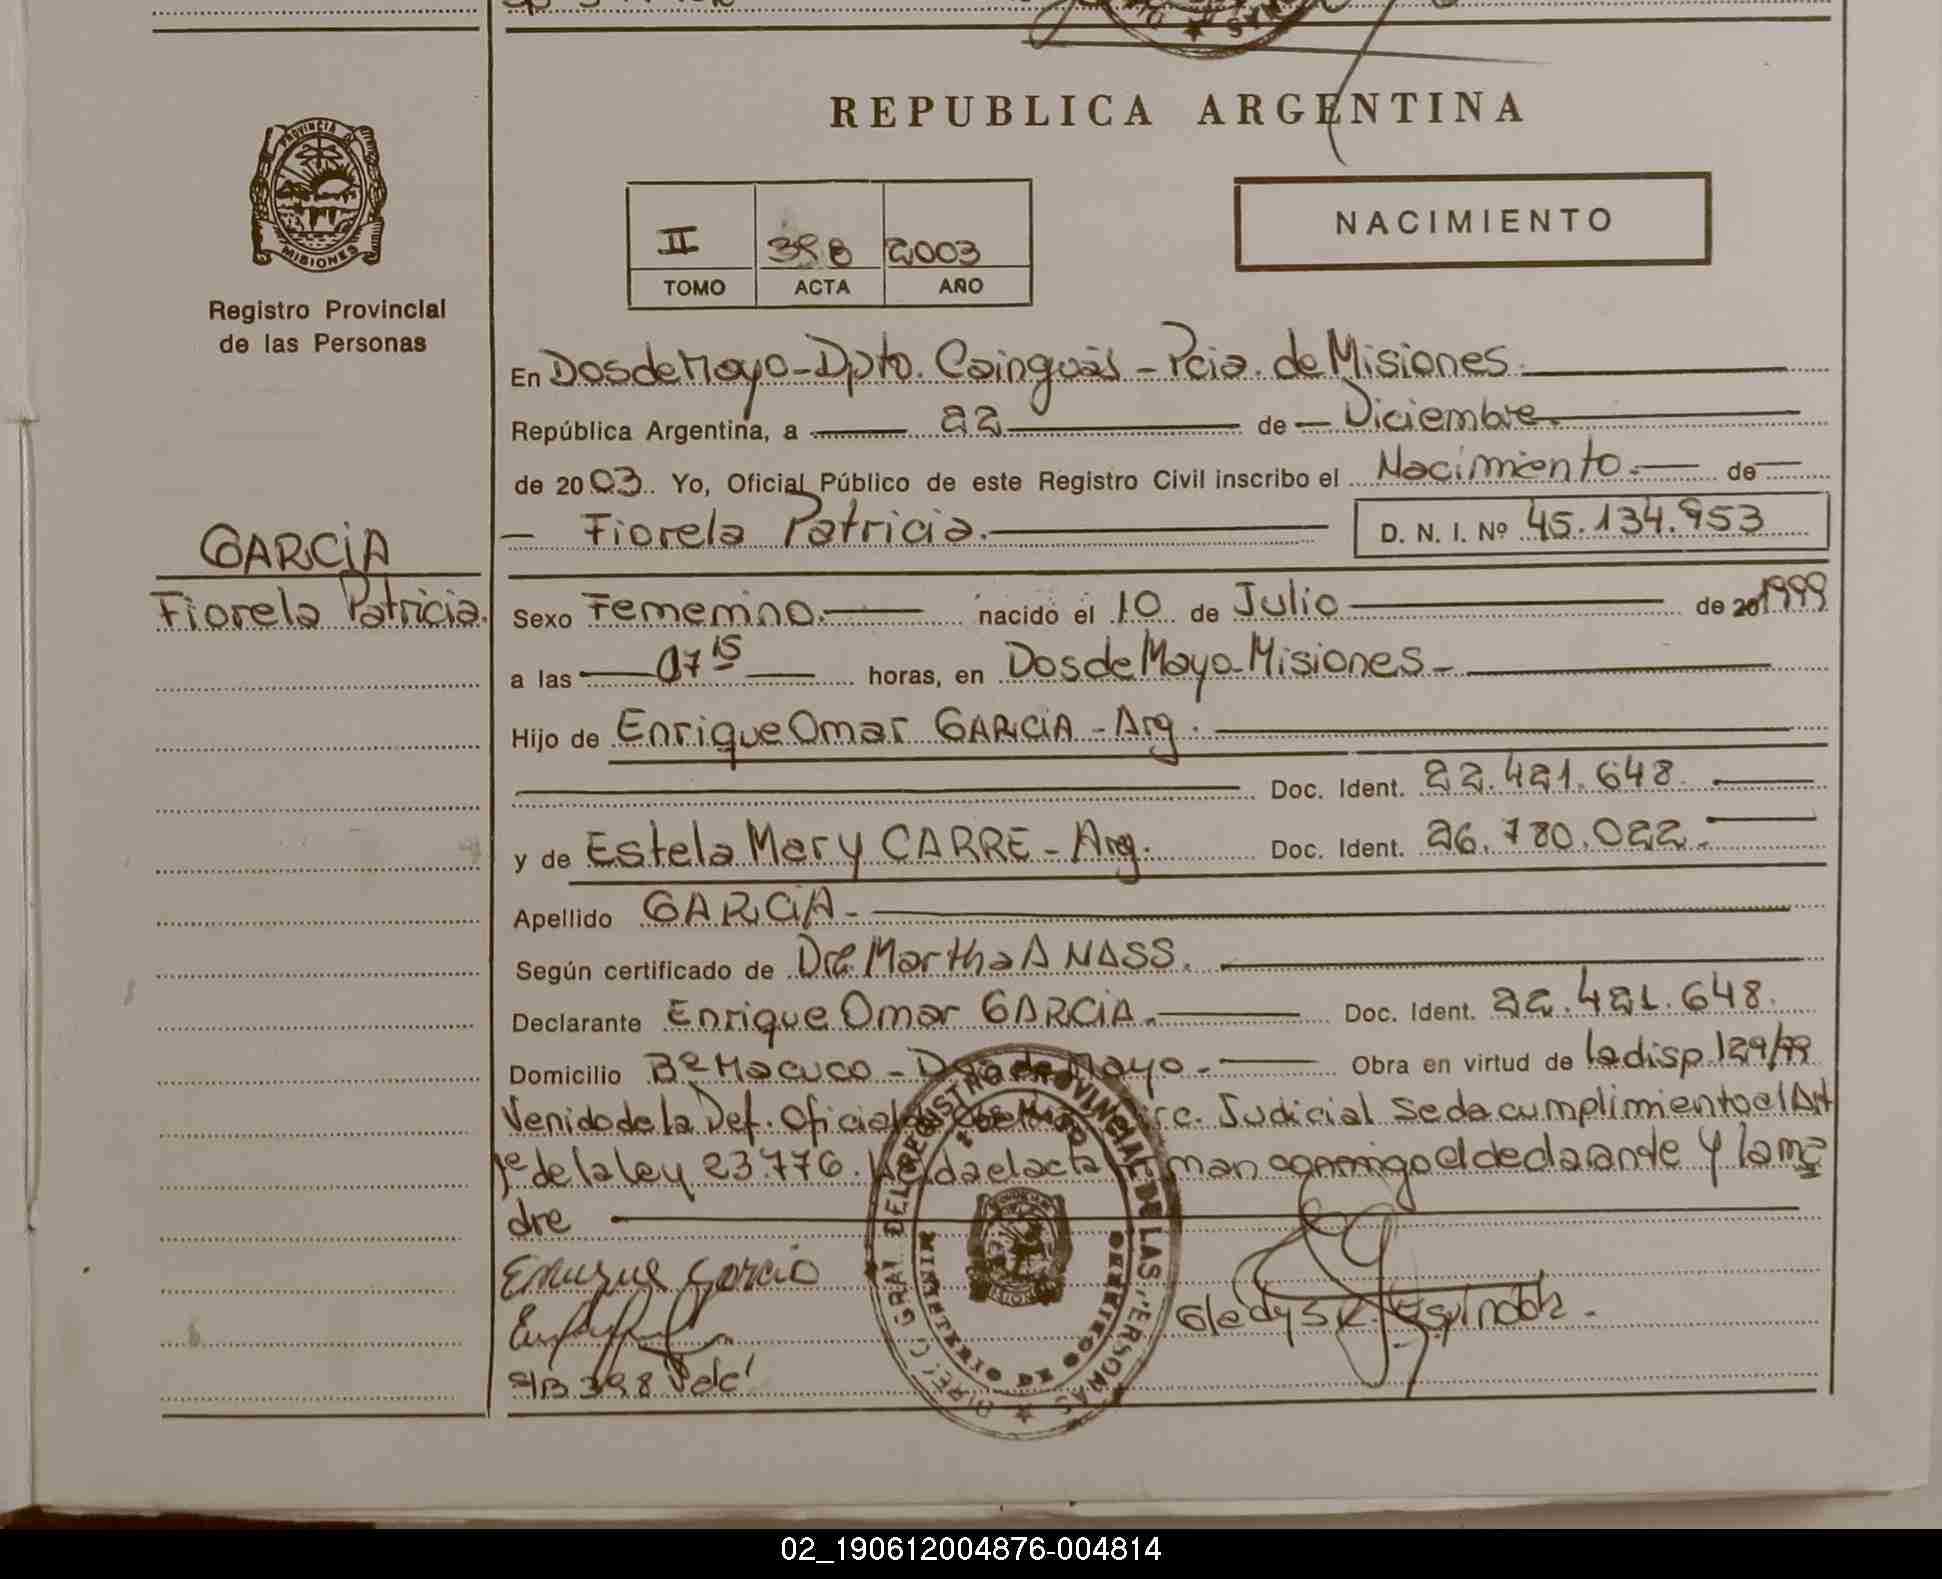 REPUBLICA ARGENTINA
PROVINCIA DE
MISIONES
Registro Provincial
de las Personas
II 398 2003
TOMO ACTA AÑO
NACIMIENTO
En Dos de Mayo - Dpto. Cainguás - Pcia. de Misiones.
República Argentina, a 22 de Diciembre
de 2003. Yo, Oficial Público de este Registro Civil inscribo el Nacimiento. de
Fiorela Patricia. D. N. I. Nº 45.134.953
GARCIA
Fiorela Patricia.
Sexo Femenino. nacido el 10 de Julio de 20 1999
a las 07 15 horas, en Dos de Mayo - Misiones -
Hijo de Enrique Omar GARCIA - Arg.
Doc. Ident. 22.421.648.
y de Estela Mary CARRE - Arg. Doc. Ident. 26.780.022.
Apellido GARCIA -
Según certificado de Dra Martha A NASS.
Declarante Enrique Omar GARCIA. Doc. Ident. 22.421.648.
Domicilio Bº Macuco - Dos de Mayo. Obra en virtud de la disp. 129/99
Venido de la Def. Oficial Circ. Judicial Se da cumplimiento el Art
1º de la ley 23.776. Leida el acta firman conmigo el declarante y la ma
dre
Enrique Garcia
Gladys R. Espindola.
398
DIREC. GRAL DEL REGISTRO PROVINCIAL DE LAS PERSONAS
02_190612004876-004814